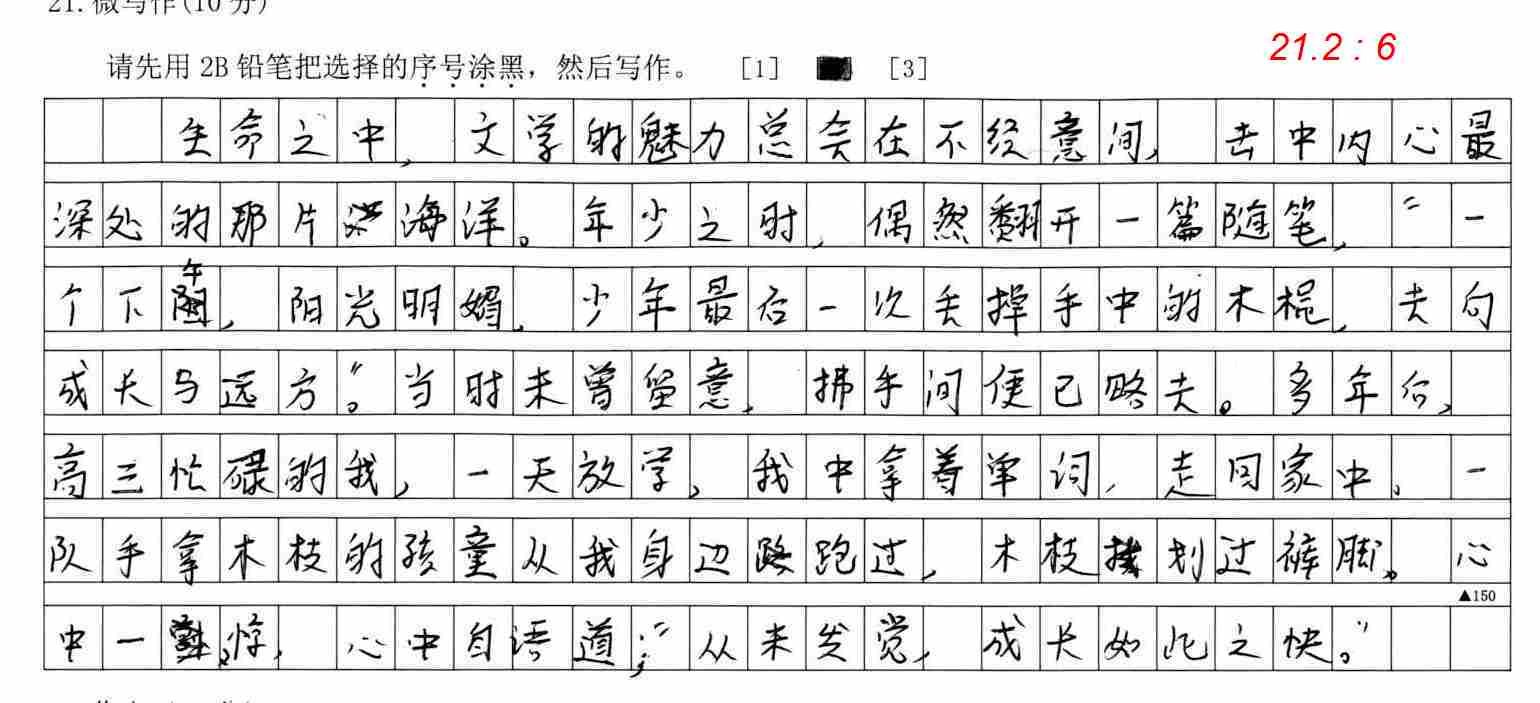 21.微写作(10 分)
21.2 : 6
请先用 2B 铅笔把选择的序号涂黑，然后写作。 [1] [3]
生命之中，文学的魅力总会在不经意间，击中内心最
深处的那片海洋。年少之时，偶然翻开一篇随笔，“一
个下午，阳光明媚，少年最后一次丢掉手中的木棍，去向
成长与远方”。当时未曾留意，拂手间便已略去。多年后，
高三忙碌的我，一天放学，我中拿着单词，走回家中。一
队手拿木枝的孩童从我身边跑过，木枝划过裤脚。心
▲150
中一惊，心中自语道；“从未发觉，成长如此之快。”